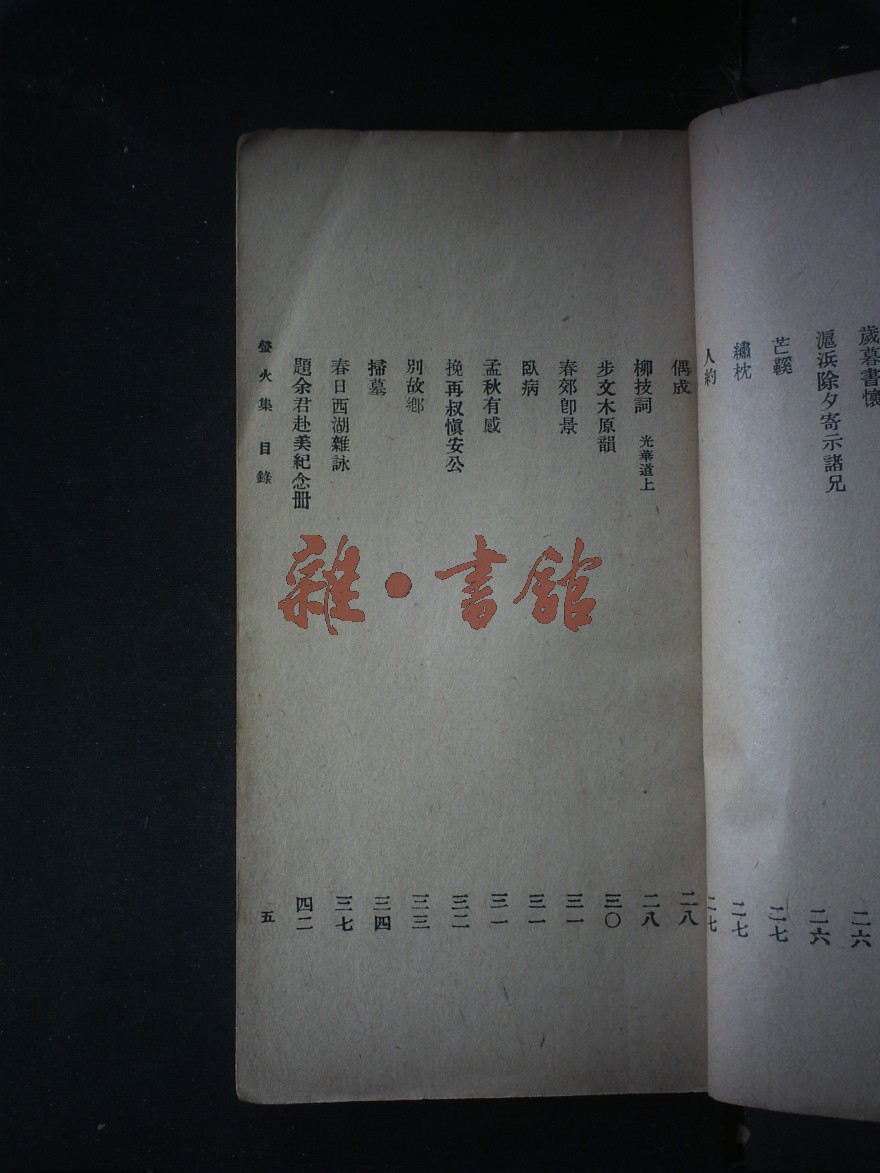 歲暮書懷 二六
滬浜除夕寄示諸兄 二六
芒鞵 二七
繡枕 二七
人約 二七
偶成 二八
柳技詞 光華道上 二八
步文木原韻 三〇
春郊卽景 三一
臥病 三一
孟秋有感 三一
挽再叔愼安公 三二
別故鄉 三三
掃墓 三四
春日西湖雜詠 三七
題余君赴美紀念冊 四二
螢火集 目錄 五
雜·書館